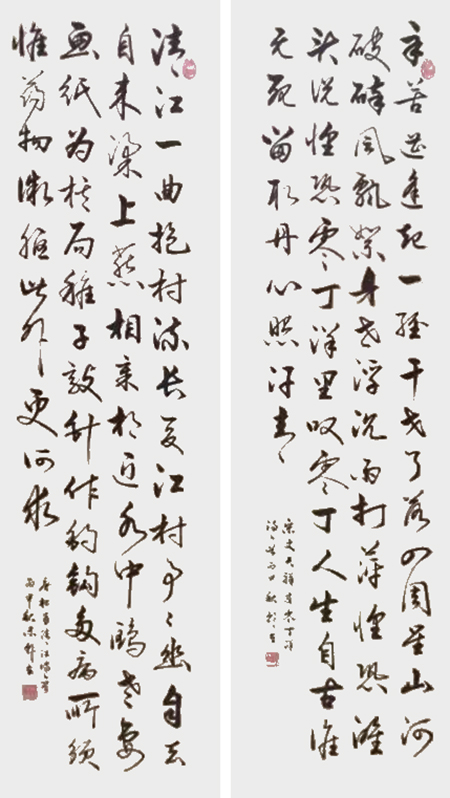 辛苦遭逢起一经干戈了落四周星山河
破碎风飘絮身世浮沉雨打萍惶恐滩
头说惶恐零丁洋里叹零丁人生自古谁
无死留取丹心照汗青
宋文天祥过零丁洋
诗一首丙申秋
清江一曲抱村流长夏江村事事幽自去
自来梁上燕相亲相近水中鸥老妻
画纸为棋局稚子敲针作钓钩多病所须
惟药物微躯此外更何求
唐杜甫诗江村一首
丙申秋